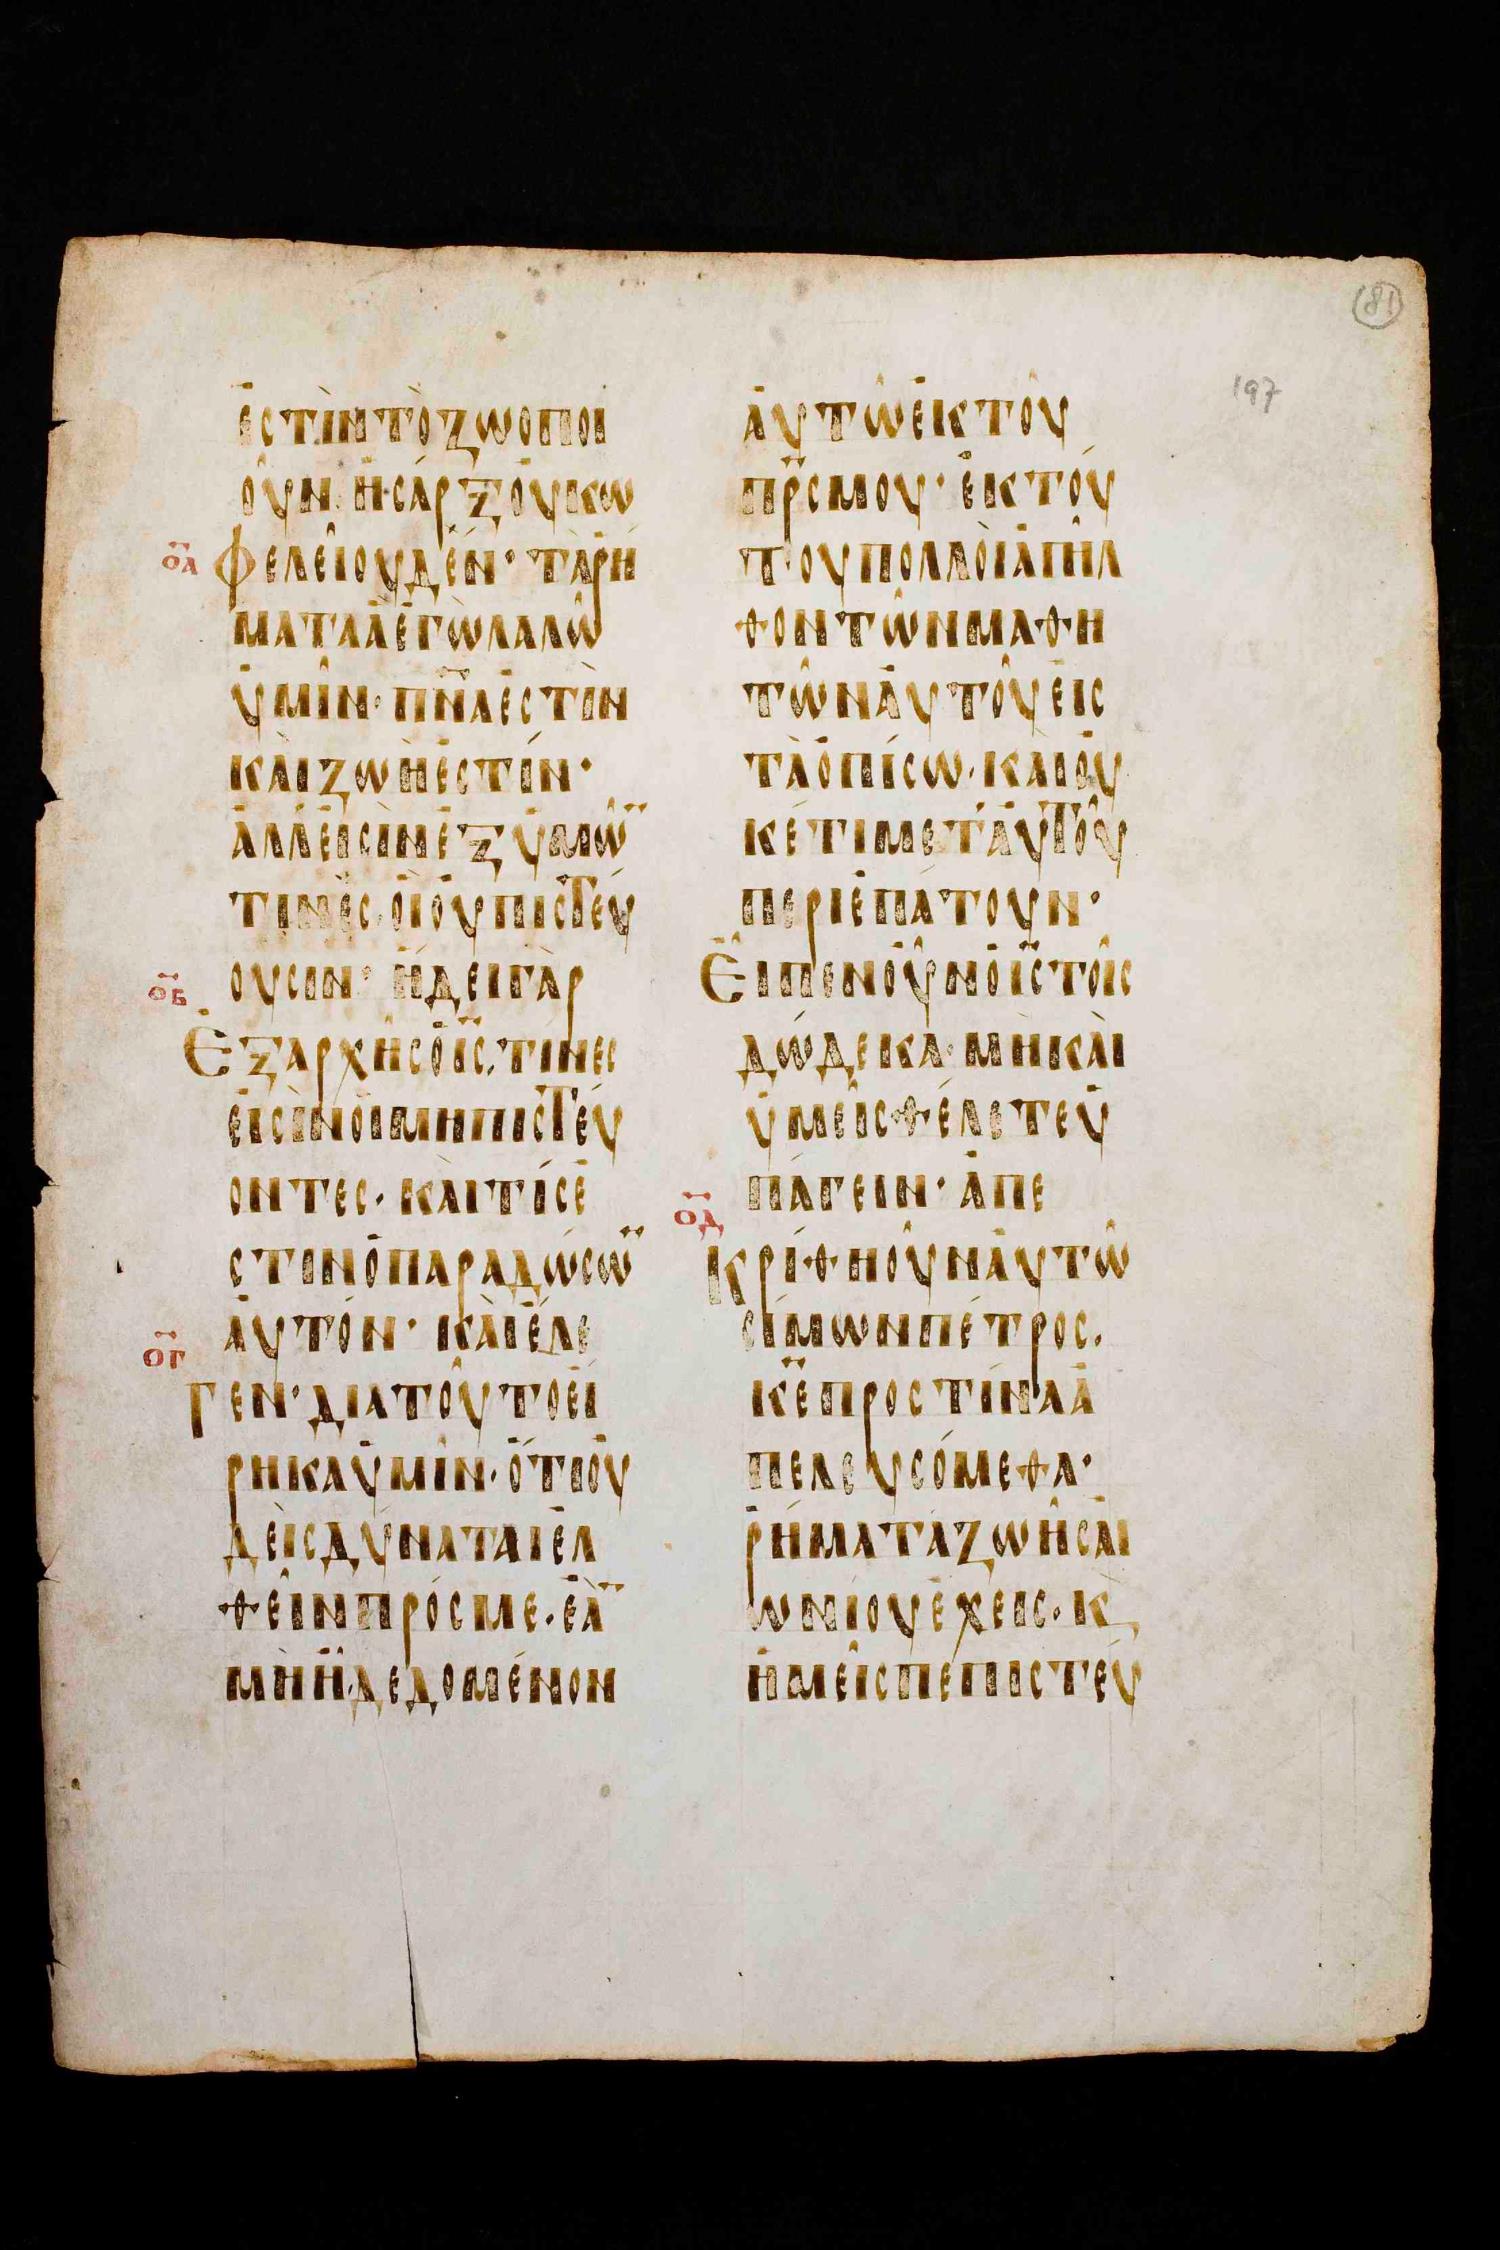 81
197
ἐστὶν τὸ ζωοποι
οῦν ἡ σάρξ οὐκ ὠ
οα
φελεῖ οὐδέν· τὰ ρή
ματα ἃ ἐγὼ λαλῶ
ὑμῖν· πνα ἐστὶν
καὶ ζωὴ ἐστίν·
ἀλλ εἰσὶν ἐξ ὑμῶ
τινὲς οἳ οὐ πιστεύ
ουσιν· ἤδει γὰρ
οβ
Ἐξ ἀρχῆς ὁ ις, τίνες
εἰσὶν οἱ μὴ πιστεύ
οντες· καὶ τίς ἐ
στιν ὁ παραδώσω
αὐτόν· καὶ ἔλε
ογ
Γεν· διατοῦτο εἴ
ρηκα ὑμῖν· ὅτι οὐ
δεὶς δύναται ἐλ
θεῖν πρός με· ἐὰ
μὴ ἦ δεδομένον
αὐτῶ ἐκ τοῦ
πρσ μου· ἐκ τού
του πολλοὶ ἀπῆλ
θον τῶν μαθη
τῶν αὐτοῦ εἰς
τὰ ὀπίσω· καὶ οὐ
κέτι μετ αὐτοῦ
περιεπάτουν·
Εἶπεν οὖν ὁ ις τοῖς
δώδεκα· μὴ καὶ
ὑμεῖς θέλετε ὑ
πάγειν· ἀπε
οδ
Κρίθη οὖν αὐτῶ
σίμων πέτρος.
κε προς τίνα ἀ
πελευσόμεθα·
ῥήματα ζωῆς αἰ
ωνίου ἔχεις· κ̀
ἡμεῖς πεπιστεύ